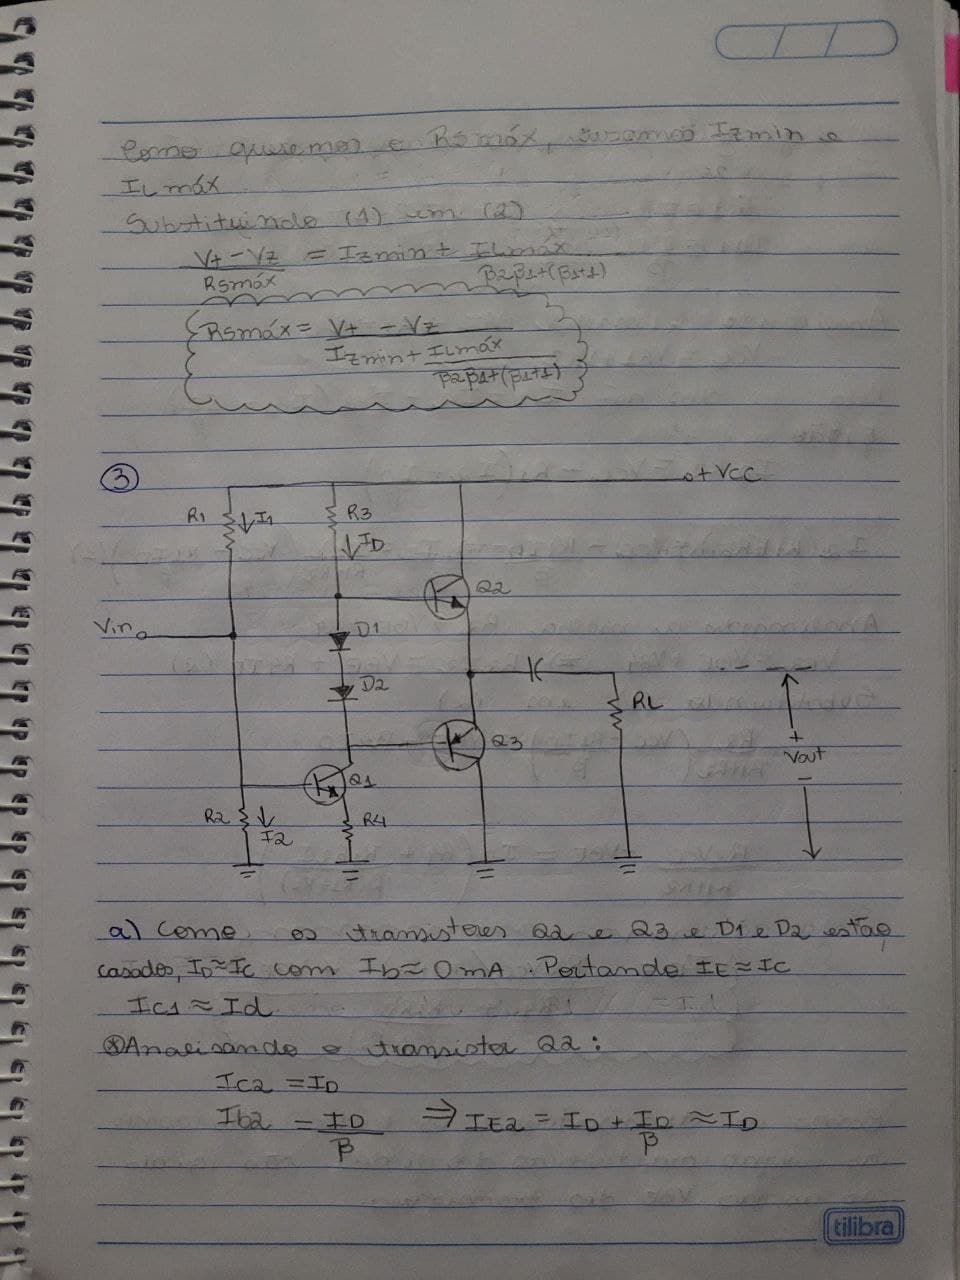 Como queremos o RSmáx, usamos Izmin e
ILmáx
Substituindo (1) em (2)
V+ - Vz = Izmin + ILmáx
RSmáx β2β1+(β1+1)
RSmáx = V+ - Vz
Izmin + ILmáx
β2β1+(β1+1)
3
+VCC
R1 I1 R3
ID
Q2
Vin
D1
D2
RL
Q3
+
Vout
-
Q1
R2 I2 R4
a) Como os transistores Q2 e Q3 e D1 e D2 estão
casados, ID≈IC com Ib≈0mA. Portando IE≈IC
IC1 ≈ Id
⊗Analisando o transistor Q2:
IC2 = ID
Ib2 = ID ⇒ IE2 = ID + ID ≈ ID
β β
tilibra